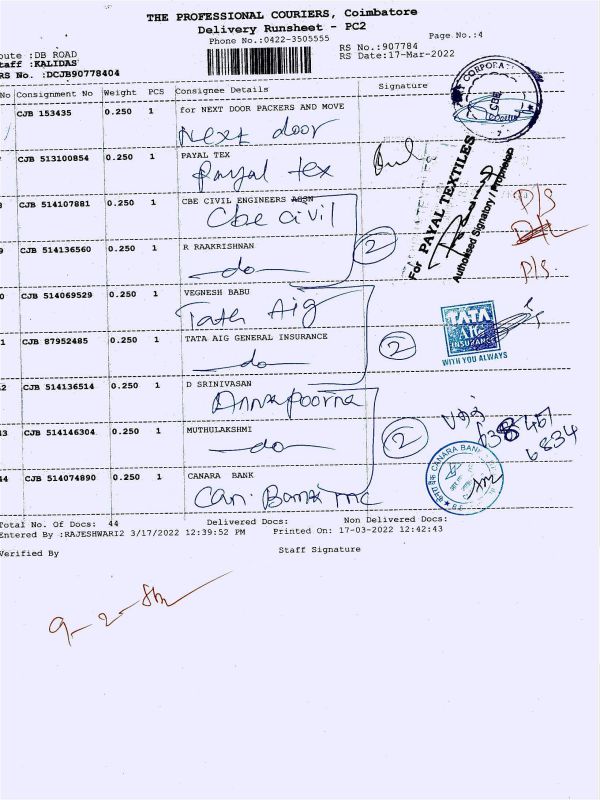 THE PROFESSIONAL COURIERS, Coimbatore
Delivery Runsheet - PC2
Phone No.:0422-3505555
Page No.:4
oute :DB ROAD
RS No.:907784
taff :KALIDAS
RS Date:17-Mar-2022
RS No. :DCJB90778404
No Consignment No Weight PCS Consignee Details Signature
CJB 153435 0.250 1 for NEXT DOOR PACKERS AND MOVE
Next door
CJB 513100854 0.250 1 PAYAL TEX
Payal tex
For PAYAL TEXTILES
Authorised Signatory / Proprietor
CJB 514107881 0.250 1 CBE CIVIL ENGINEERS ASSN
Cbe Civil
D/S
2
9 CJB 514136560 0.250 1 R RAAKRISHNAN
do
D/S.
0 CJB 514069529 0.250 1 VEGNESH BABU
Tata Aig
TATA
AIG
INSURANCE
WITH YOU ALWAYS
1 CJB 87952485 0.250 1 TATA AIG GENERAL INSURANCE
2
do
2 CJB 514136514 0.250 1 D SRINIVASAN
Annapoorna
3 CJB 514146304 0.250 1 MUTHULAKSHMI
2
do
6834
CANARA BANK
4 CJB 514074890 0.250 1 CANARA BANK
Can. Bank
Total No. Of Docs: 44 Delivered Docs: Non Delivered Docs:
Entered By :RAJESHWARI2 3/17/2022 12:39:52 PM Printed On: 17-03-2022 12:42:43
Verified By Staff Signature
9-2-